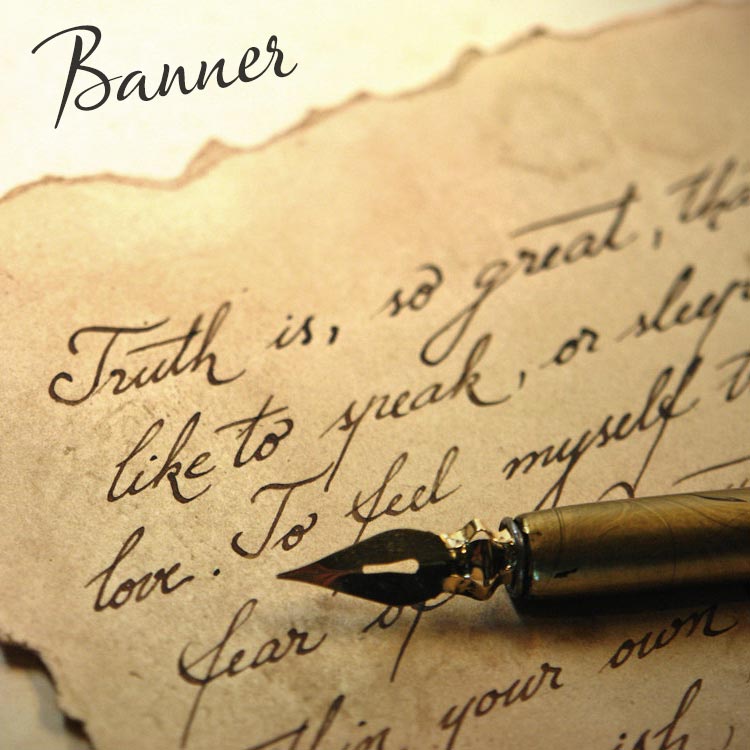 Banner
Truth is, so great, tha
like to speak, or sleep
love. To feel myself t
fear of
thin your own
ish